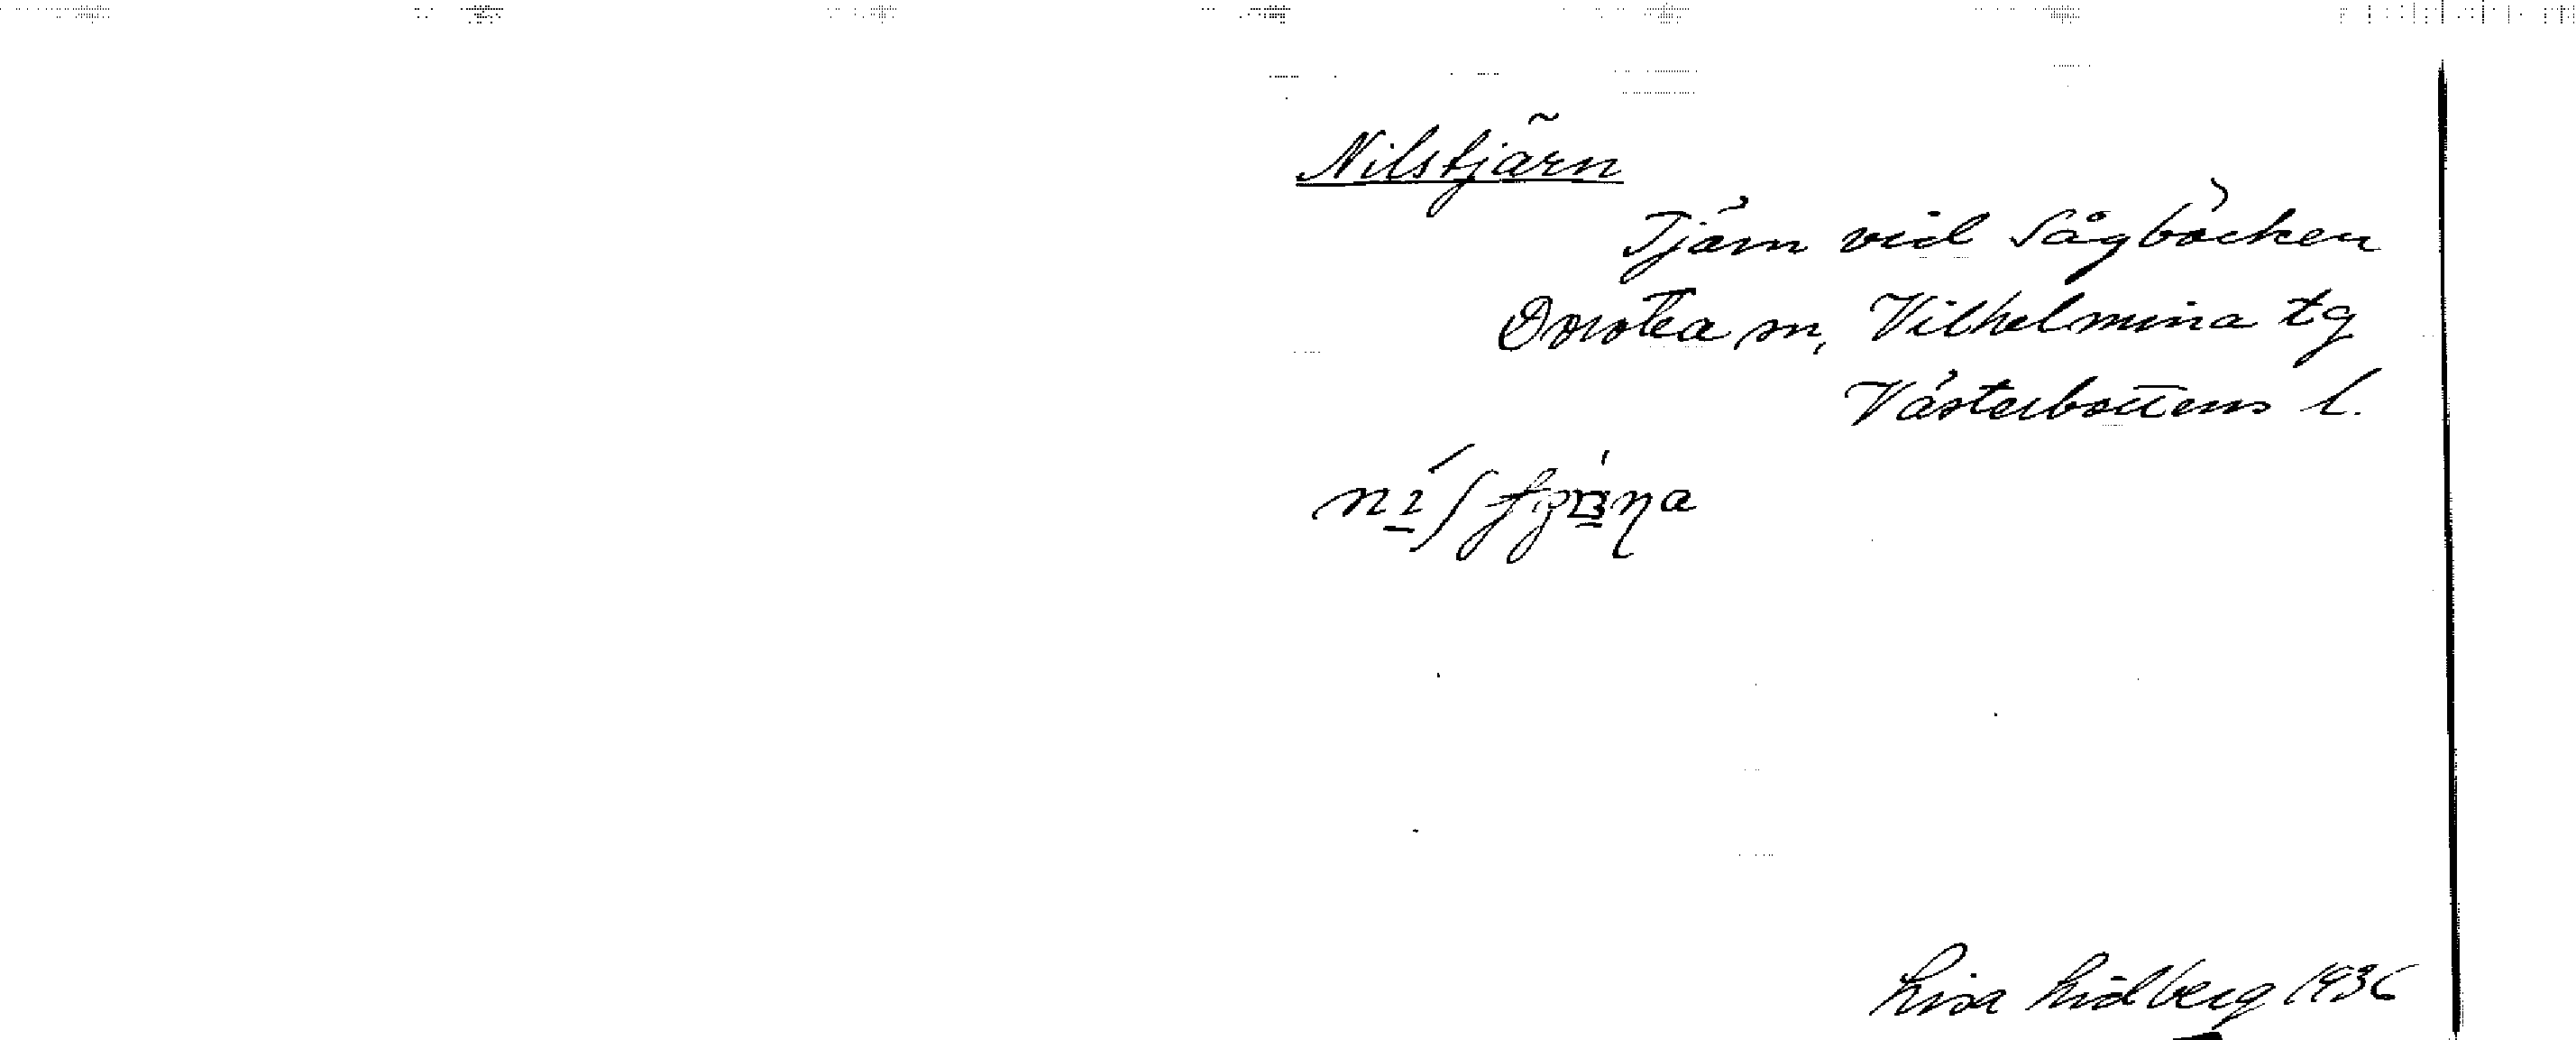 Nilstjärn
Tjärn vid Sågbäcken
Dorotea sn, Vilhelmina tg
Västerbottens l.
Lisa Lidberg 1936